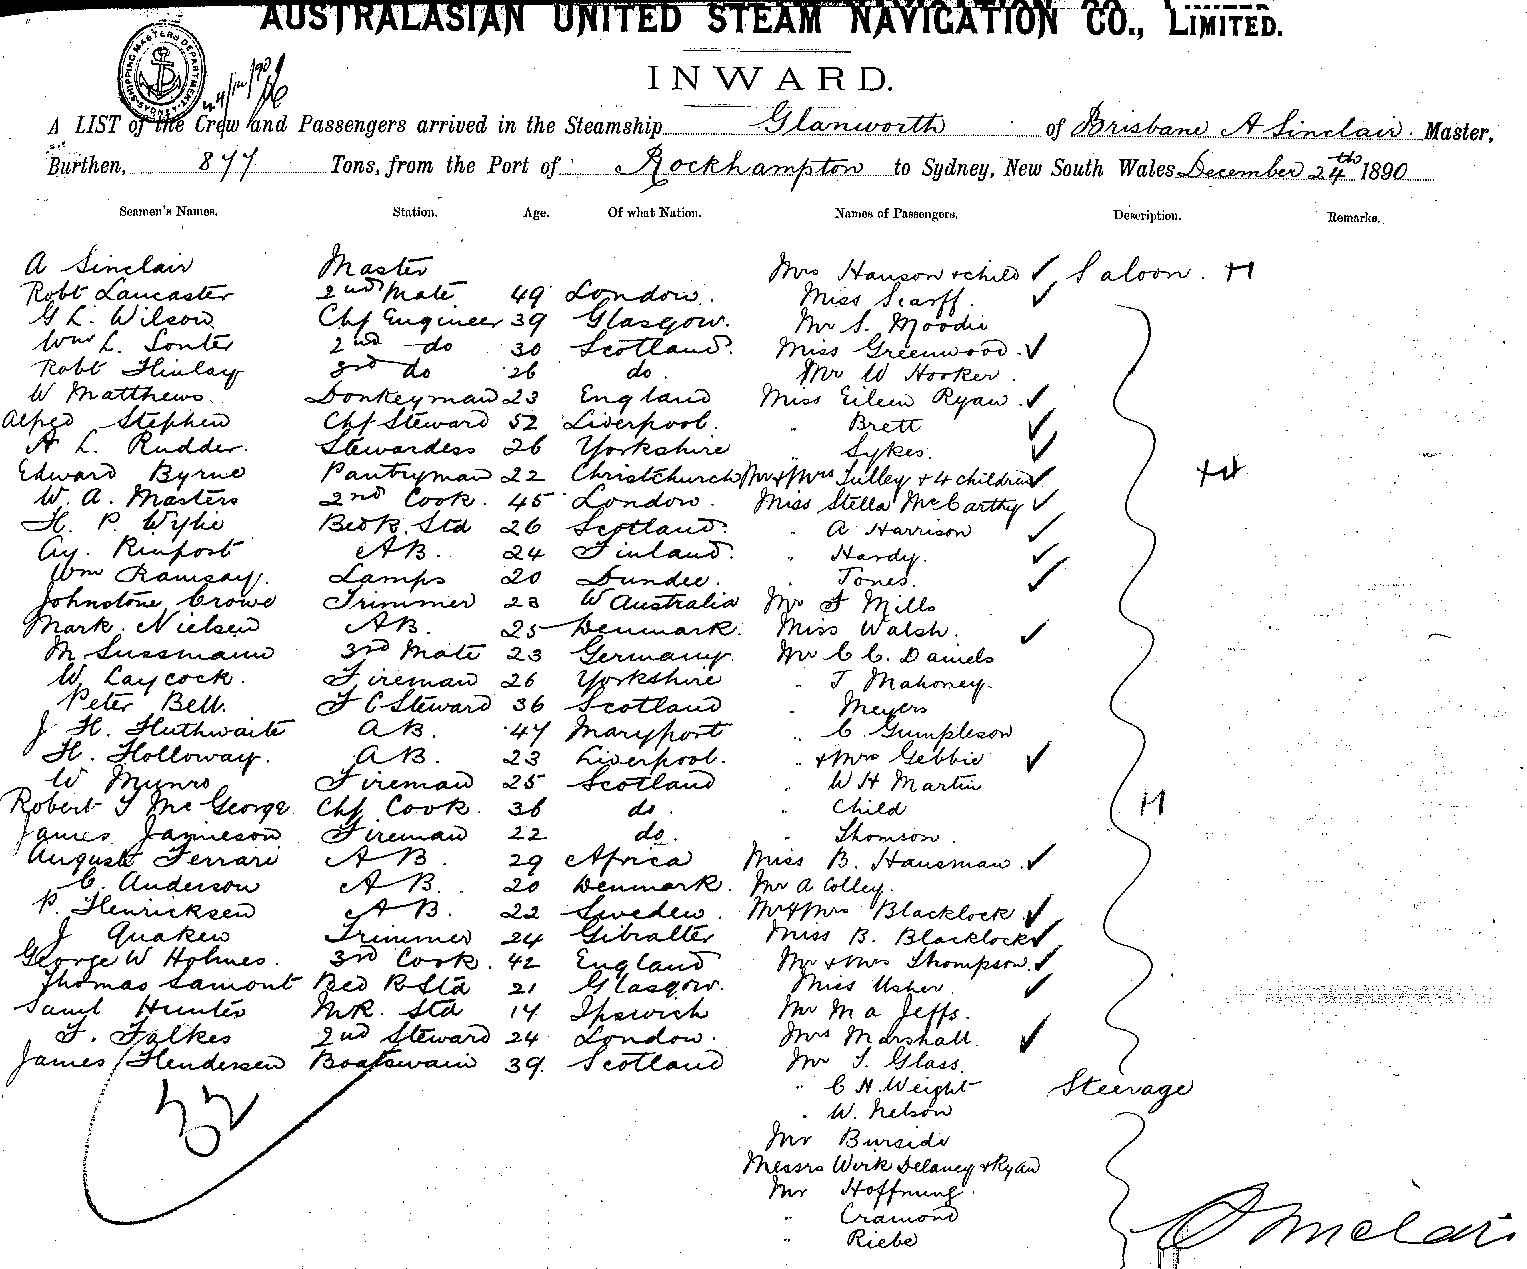 AUSTRALASIAN UNITED STEAM NAVIGATION CO., LIMITED.
INWARD.
A LIST of the Crew and Passengers arrived in the Steamship Glanworth of Brisbane A Sinclair Master,
Burthen, 877 Tons, from the Port of Rockhampton to Sydney, New South Wales December 24th 1890
Seamen's Names. Station. Age. Of what Nation. Names of Passengers. Description. Remarks.
A Sinclair Master Mrs Hanson + child ✓ Saloon. H
Robt Lancaster 2nd Mate 49 London. Miss Scarff. ✓
G L. Wilson Chf Engineer 39 Glasgow. Mr S. Moodie
Wm L. Souter 2nd do 30 Scotland. Miss Greenwood. ✓
Robt Finlay 3rd do 26 do. Mr W Hooker.
W Matthews. Donkeyman 23 England Miss Eileen Ryan. ✓
Alfred Stephen Chf Steward 52 Liverpool. " Brett ✓
A L. Rudder. Stewardess 26 Yorkshire " Sykes. ✓
Edward Byrne Pantryman 22 Christchurch Mr & Mrs Tulley + 4 children ✓
W. A. Masters 2nd Cook. 45 London. Miss Stella McCarthy ✓
H. P. Wylie Bedk Std 26 Scotland. " A Harrison ✓
Ay. Rinpost AB. 24 Finland. " Hardy. ✓
Wm Ramsay. Lamps 20 Dundee. " Jones. ✓
Johnstone Crowe Trimmer 23 W Australia Mr F Mills
Mark. Nielsen AB. 25 Denmark. Miss Walsh. ✓
M Sussmann 3rd Mate 23 Germany Mr C C. Daniels
W. Laycock. Fireman 26 Yorkshire " T Mahoney.
Peter Bell. F C Steward 36 Scotland " Meyers
J H. Huthwaite AB. 47 Maryport " C Gumpleson
H. Holloway. AB. 23 Liverpool. " + Mrs Gebbie ✓
W Munro Fireman 25 Scotland " W H Martin
Robert T McGeorge Chf Cook. 36 do. " Child H
James Jamieson Fireman 22 do. " Thomson.
August Ferrari AB. 29 Africa Miss B. Hausman. ✓
C. Anderson AB. 20 Denmark. Mr A Colley.
P. Henricksen AB. 22 Sweden. Mr & Mrs Blacklock ✓
J Quaken Trimmer 24 Gibralter Miss B. Blacklock ✓
George W Holmes. 3rd Cook. 42 England Mr & Mrs Thompson. ✓
Thomas Lamont Bed R Std 21 Glasgow. Miss Usher. ✓
Saml Hunter M.R. Std 14 Ipswich Mr M A Jeffs.
F. Falkes 2nd Steward 24 London. Mrs Marshall. ✓
James Hendersen Boatswain 39 Scotland Mr T. Glass.
" C H Weight Steerage
32 " W. Nelson
Mr Burside
Messrs Wirk Delaney & Ryan
Mr Hoffnung.
" Cramond
" Riebe
A Sinclair